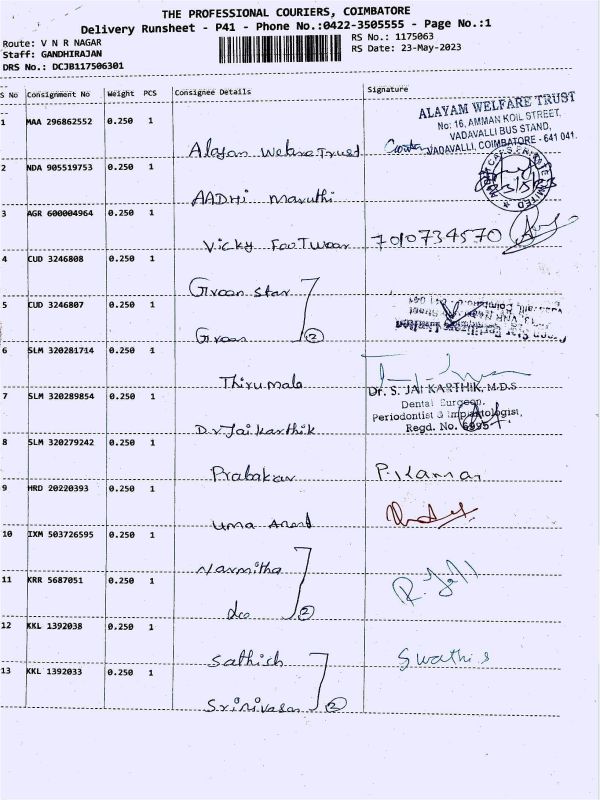 THE PROFESSIONAL COURIERS, COIMBATORE
Delivery Runsheet - P41 - Phone No.:0422-3505555 - Page No.:1
Route: V N R NAGAR
RS No.: 1175063
Staff: GANDHIRAJAN
RS Date: 23-May-2023
DRS No.: DCJB117506301
S No Consignment No Weight PCS Consignee Details Signature
1 MAA 296862552 0.250 1
ALAYAM WELFARE TRUST
No: 16, AMMAN KOIL STREET,
VADAVALLI BUS STAND,
VADAVALLI, COIMBATORE - 641 041.
Alayam Welfare Trust
2 NDA 905519753 0.250 1
AADHI Maruthi
3 AGR 600004964 0.250 1
Vicky FooTwear 7010734570
4 CUD 3246808 0.250 1
Green star
5 CUD 3246807 0.250 1
Green 2
6 SLM 320281714 0.250 1
Thirumala
7 SLM 320289854 0.250 1
Dr. S. JAI KARTHIK, M.D.S
Dental Surgeon,
Periodontist & Implantologist,
Regd. No. 6995
Dr Jai Karthik
8 SLM 320279242 0.250 1
Prabakar
9 HRD 20220393 0.250 1
Uma Anand
10 IXM 503726595 0.250 1
Narmitha
11 KRR 5687051 0.250 1
do 2
12 KKL 1392038 0.250 1
Sathish Swathi s
13 KKL 1392033 0.250 1
Srinivasan 2